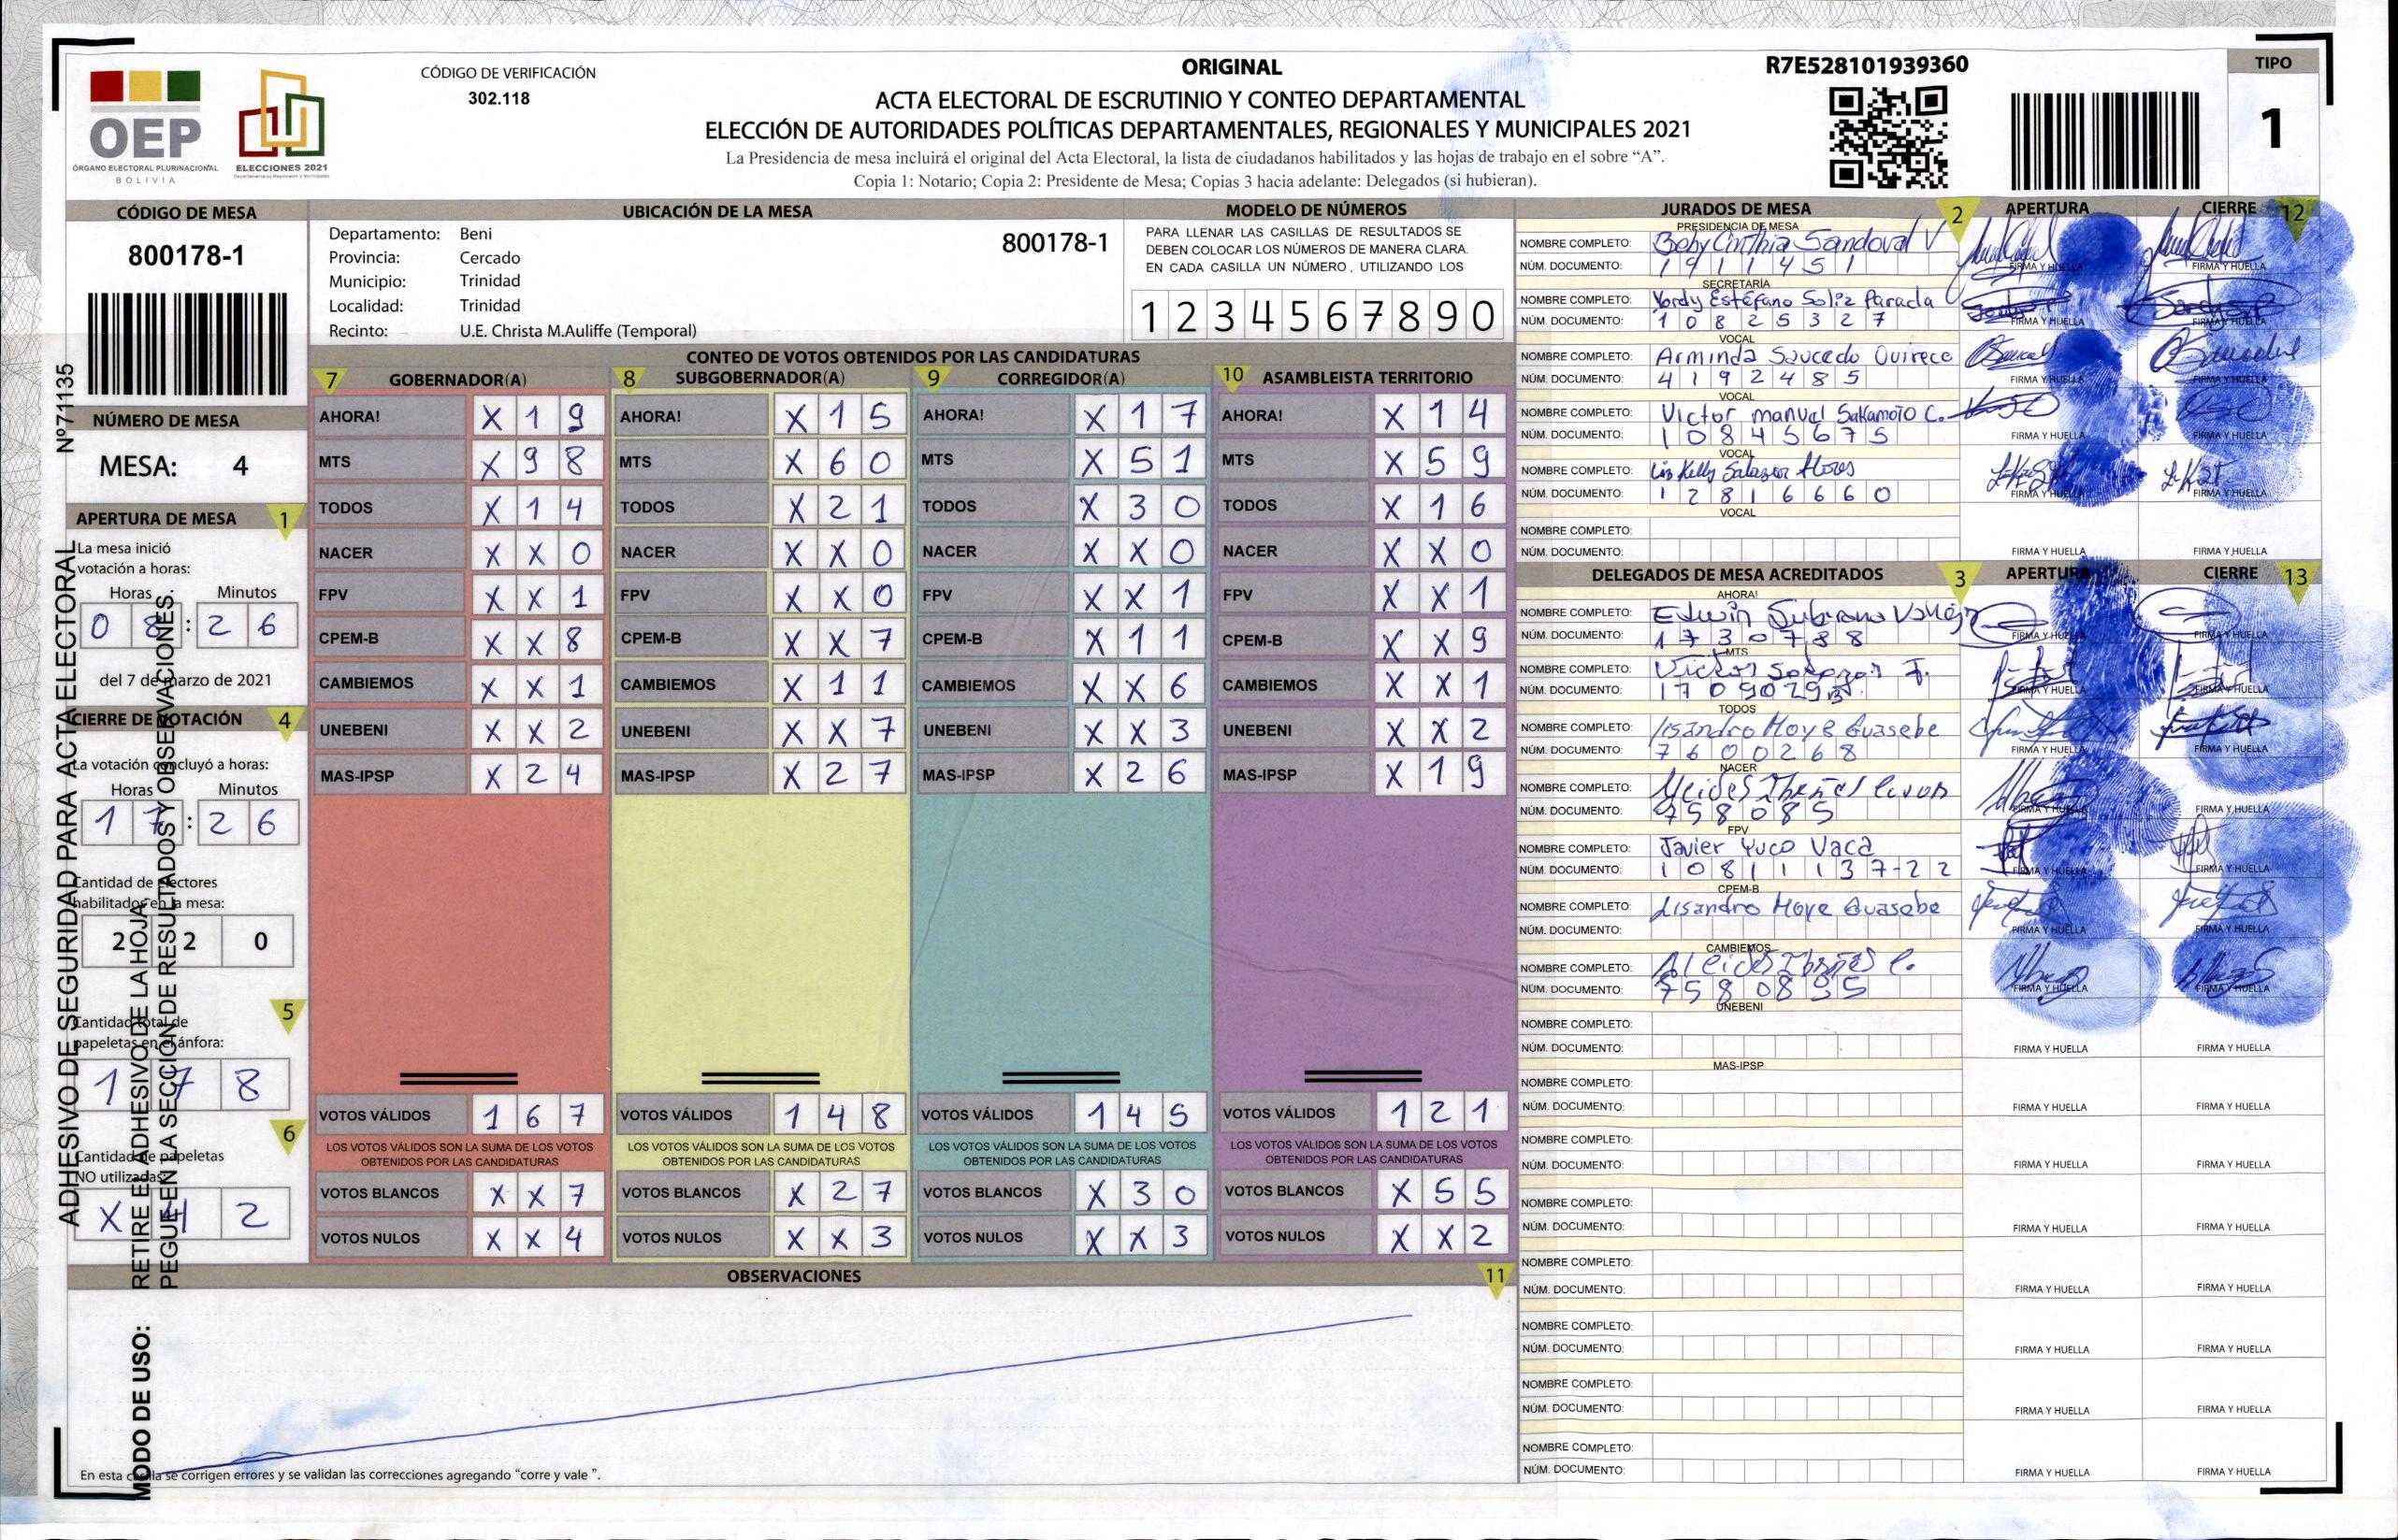 ORIGINAL
R7E528101939360
TIPO
1
CÓDIGO DE VERIFICACIÓN
302.118
OEP
ÓRGANO ELECTORAL PLURINACIONAL
BOLIVIA
ELECCIONES 2021
ACTA ELECTORAL DE ESCRUTINIO Y CONTEO DEPARTAMENTAL
ELECCIÓN DE AUTORIDADES POLÍTICAS DEPARTAMENTALES, REGIONALES Y MUNICIPALES 2021
La Presidencia de mesa incluirá el original del Acta Electoral, la lista de ciudadanos habilitados y las hojas de trabajo en el sobre “A”.
Copia 1: Notario; Copia 2: Presidente de Mesa; Copias 3 hacia adelante: Delegados (si hubieran).
CÓDIGO DE MESA
800178-1
UBICACIÓN DE LA MESA
Departamento: Beni
Provincia: Cercado
Municipio: Trinidad
Localidad: Trinidad
Recinto: U.E. Christa M.Auliffe (Temporal)
800178-1
MODELO DE NÚMEROS
PARA LLENAR LAS CASILLAS DE RESULTADOS SE
DEBEN COLOCAR LOS NÚMEROS DE MANERA CLARA.
EN CADA CASILLA UN NÚMERO, UTILIZANDO LOS
1 2 3 4 5 6 7 8 9 0
NÚMERO DE MESA
MESA: 4
APERTURA DE MESA 1
La mesa inició
votación a horas:
Horas Minutos
0 8 : 2 6
del 7 de marzo de 2021
CIERRE DE VOTACIÓN 4
La votación concluyó a horas:
Horas Minutos
1 7 : 2 6
Cantidad de electores
habilitados en la mesa:
2 2 0
5
Cantidad total de
papeletas en el ánfora:
1 7 8
6
Cantidad de papeletas
NO utilizadas:
X 4 2
N°71135
ADHESIVO DE SEGURIDAD PARA ACTA ELECTORAL
MODO DE USO: RETIRE EL ADHESIVO DE LA HOJA
PEGUE EN LA SECCIÓN DE RESULTADOS Y OBSERVACIONES.
CONTEO DE VOTOS OBTENIDOS POR LAS CANDIDATURAS
7 GOBERNADOR(A) 8 SUBGOBERNADOR(A) 9 CORREGIDOR(A) 10 ASAMBLEISTA TERRITORIO
AHORA! X 1 9 AHORA! X 1 5 AHORA! X 1 7 AHORA! X 1 4
MTS X 9 8 MTS X 6 0 MTS X 5 1 MTS X 5 9
TODOS X 1 4 TODOS X 2 1 TODOS X 3 0 TODOS X 1 6
NACER X X 0 NACER X X 0 NACER X X 0 NACER X X 0
FPV X X 1 FPV X X 0 FPV X X 1 FPV X X 1
CPEM-B X X 8 CPEM-B X X 7 CPEM-B X 1 1 CPEM-B X X 9
CAMBIEMOS X X 1 CAMBIEMOS X 1 1 CAMBIEMOS X X 6 CAMBIEMOS X X 1
UNEBENI X X 2 UNEBENI X X 7 UNEBENI X X 3 UNEBENI X X 2
MAS-IPSP X 2 4 MAS-IPSP X 2 7 MAS-IPSP X 2 6 MAS-IPSP X 1 9
VOTOS VÁLIDOS 1 6 7 VOTOS VÁLIDOS 1 4 8 VOTOS VÁLIDOS 1 4 5 VOTOS VÁLIDOS 1 2 1
LOS VOTOS VÁLIDOS SON LA SUMA DE LOS VOTOS LOS VOTOS VÁLIDOS SON LA SUMA DE LOS VOTOS LOS VOTOS VÁLIDOS SON LA SUMA DE LOS VOTOS LOS VOTOS VÁLIDOS SON LA SUMA DE LOS VOTOS
OBTENIDOS POR LAS CANDIDATURAS OBTENIDOS POR LAS CANDIDATURAS OBTENIDOS POR LAS CANDIDATURAS OBTENIDOS POR LAS CANDIDATURAS
VOTOS BLANCOS X X 7 VOTOS BLANCOS X 2 7 VOTOS BLANCOS X 3 0 VOTOS BLANCOS X 5 5
VOTOS NULOS X X 4 VOTOS NULOS X X 3 VOTOS NULOS X X 3 VOTOS NULOS X X 2
OBSERVACIONES 11
En esta casilla se corrigen errores y se validan las correcciones agregando “corre y vale ”.
JURADOS DE MESA 2 APERTURA CIERRE 12
PRESIDENCIA DE MESA
NOMBRE COMPLETO: Beby Cinthia Sandoval V
NÚM. DOCUMENTO: 1911451 FIRMA Y HUELLA FIRMA Y HUELLA
SECRETARÍA
NOMBRE COMPLETO: Yordy Estéfano Soliz Parada
NÚM. DOCUMENTO: 10825327 FIRMA Y HUELLA FIRMA Y HUELLA
VOCAL
NOMBRE COMPLETO: Arminda Saucedo Quirece
NÚM. DOCUMENTO: 4192485 FIRMA Y HUELLA FIRMA Y HUELLA
VOCAL
NOMBRE COMPLETO: Victor manuel Sakamoto C.
NÚM. DOCUMENTO: 10845675 FIRMA Y HUELLA FIRMA Y HUELLA
VOCAL
NOMBRE COMPLETO: Liz Kelly Salazar flores
NÚM. DOCUMENTO: 12816660 FIRMA Y HUELLA FIRMA Y HUELLA
VOCAL
NOMBRE COMPLETO:
NÚM. DOCUMENTO: FIRMA Y HUELLA FIRMA Y HUELLA
DELEGADOS DE MESA ACREDITADOS 3 APERTURA CIERRE 13
AHORA!
NOMBRE COMPLETO: Edwin
NÚM. DOCUMENTO: 1730788 FIRMA Y HUELLA FIRMA Y HUELLA
MTS
NOMBRE COMPLETO: Victor Salazar F.
NÚM. DOCUMENTO: FIRMA Y HUELLA FIRMA Y HUELLA
TODOS
NOMBRE COMPLETO: lisandro Moye Guasebe
NÚM. DOCUMENTO: 7600268 FIRMA Y HUELLA FIRMA Y HUELLA
NACER
NOMBRE COMPLETO:
NÚM. DOCUMENTO: 758085 FIRMA Y HUELLA FIRMA Y HUELLA
FPV
NOMBRE COMPLETO: Javier Yuco Vaca
NÚM. DOCUMENTO: 10811137-22 FIRMA Y HUELLA FIRMA Y HUELLA
CPEM-B
NOMBRE COMPLETO: Lisandro Moye Guasebe
NÚM. DOCUMENTO: FIRMA Y HUELLA FIRMA Y HUELLA
CAMBIEMOS
NOMBRE COMPLETO: Aleides
NÚM. DOCUMENTO: FIRMA Y HUELLA FIRMA Y HUELLA
UNEBENI
NOMBRE COMPLETO:
NÚM. DOCUMENTO: FIRMA Y HUELLA FIRMA Y HUELLA
MAS-IPSP
NOMBRE COMPLETO:
NÚM. DOCUMENTO: FIRMA Y HUELLA FIRMA Y HUELLA
NOMBRE COMPLETO:
NÚM. DOCUMENTO: FIRMA Y HUELLA FIRMA Y HUELLA
NOMBRE COMPLETO:
NÚM. DOCUMENTO: FIRMA Y HUELLA FIRMA Y HUELLA
NOMBRE COMPLETO:
NÚM. DOCUMENTO: FIRMA Y HUELLA FIRMA Y HUELLA
NOMBRE COMPLETO:
NÚM. DOCUMENTO: FIRMA Y HUELLA FIRMA Y HUELLA
NOMBRE COMPLETO:
NÚM. DOCUMENTO: FIRMA Y HUELLA FIRMA Y HUELLA
NOMBRE COMPLETO:
NÚM. DOCUMENTO: FIRMA Y HUELLA FIRMA Y HUELLA